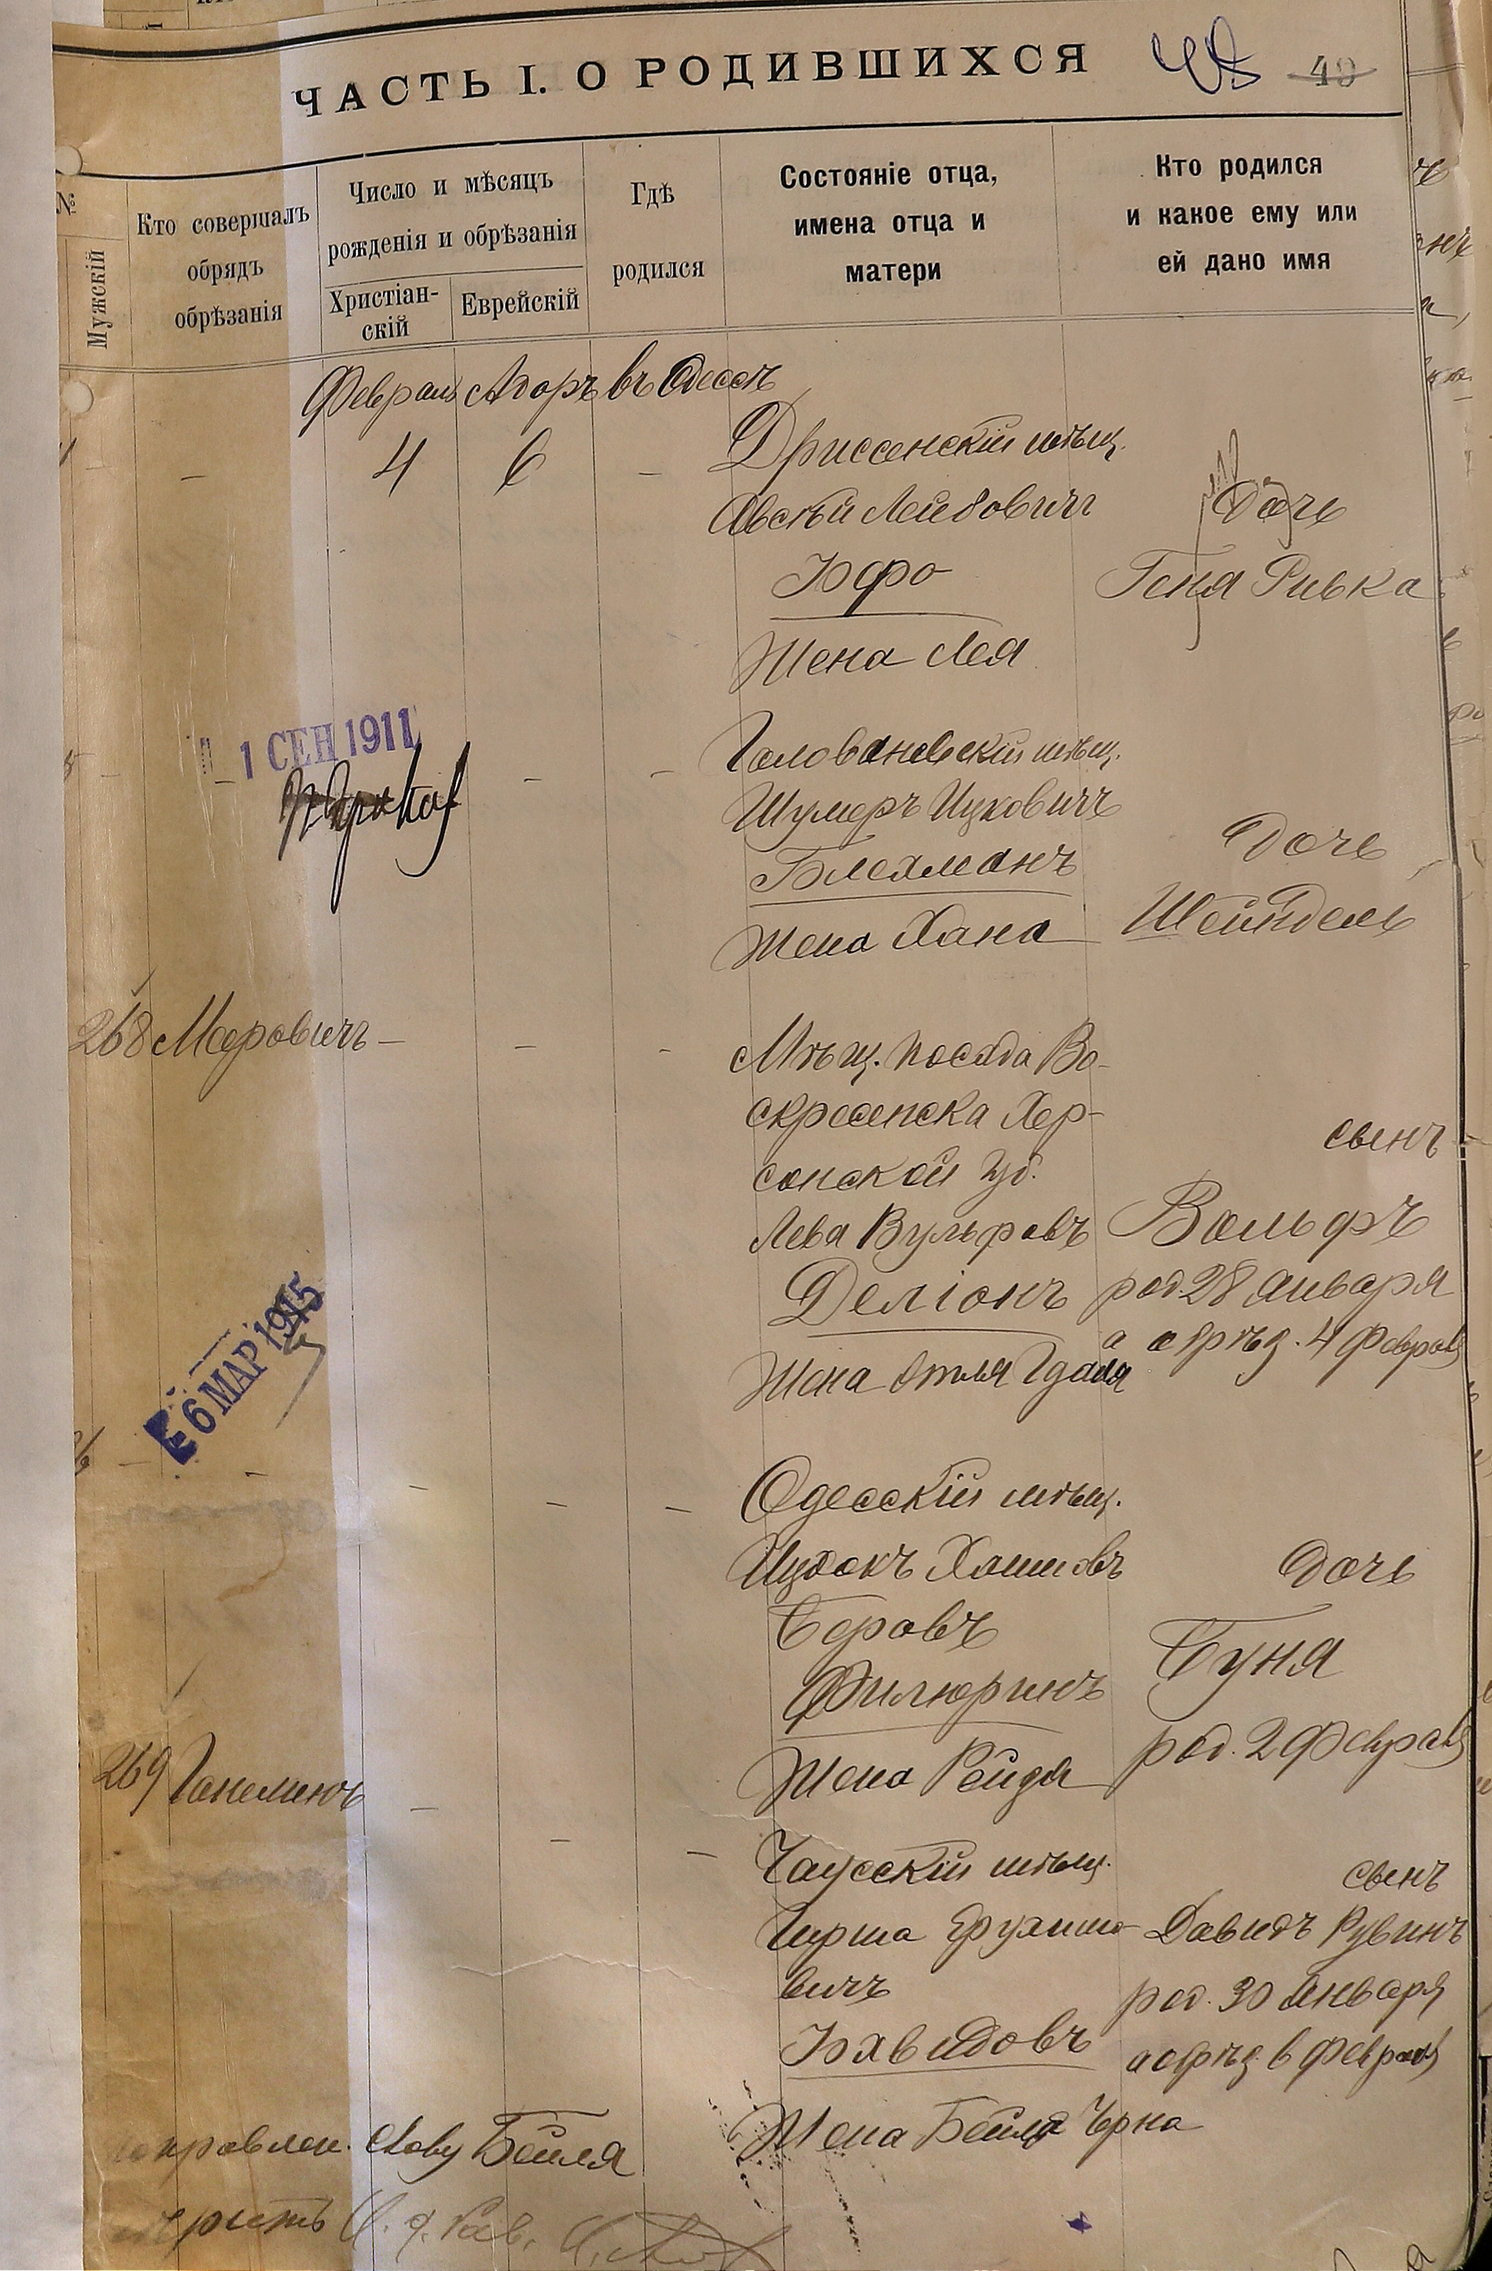 ЧАСТЬ I. О РОДИВШИХСЯ 40
№
Мужскій
Кто совершалъ
обрядъ
обрѣзанія
Число и мѣсяцъ
рожденія и обрѣзанія
Христіан-
скій
Еврейскій
Гдѣ
родился
Состояніе отца,
имена отца и
матери
Кто родился
и какое ему или
ей дано имя
Февраль Адоръ въ Одессѣ
4 6
Дриссенскій мѣщ.
Овсѣй Лейбовичъ
Іофо
Жена Лея
Дочь
Геня Ривка
1 СЕН 1911
Голованевскій мѣщ.
Шумеръ Ицковичъ
Блехманъ
Жена Хана
Дочь
Шейндель
268 Меровичъ
Мѣщ. посада Во-
скресенска Хер-
сонской губ.
Лева Вульфовъ
Деліонъ
Жена Этля Гдаля
сынъ
Вольфъ
род 28 января
а обрѣз. 4 Февраля
6 МАР 1915
Одесскій мѣщ.
Ицхокъ Хаимовъ
Беровъ
Филюринъ
Жена Рейзя
дочь
Буня
род. 2 Февраля
269 Ганелинъ
Чаусскій мѣщ.
Гирша Ерухимо-
вичъ
Іохвидовъ
Жена Бейля Черна
сынъ
Давидъ Рувинъ
род. 30 января
а обрѣз. 6 Февраля
Бейля